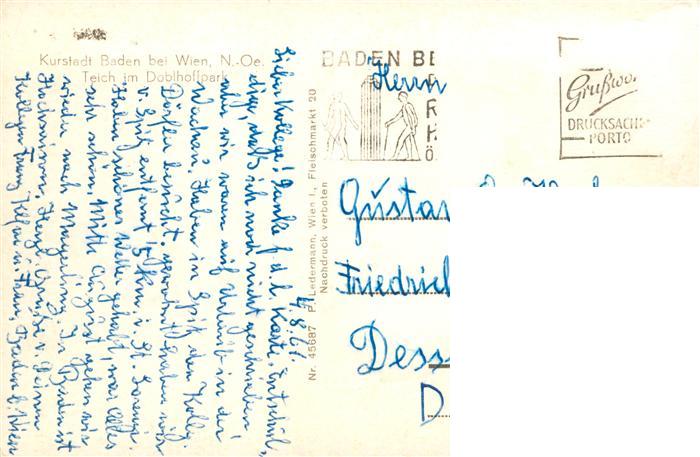 Kurstadt Baden bei Wien, N.-Oe.
Teich im Doblhoffpark
4.8.61.
Lieber Kollege! Danke f. d. l. Karte. Entschul-
dige, daß ich noch nicht geschrieben,
aber wir waren auf Urlaub in der
Wachau. Haben in Spitz den Kolleg.
Dörfler besucht. gewohnt haben wir
v. Spitz entfernt 15 km, i. St. Lorenz.
Haben schönes Wetter gehabt, war alles
sehr schön. Mitte August gehen wir
wieder nach Mayerling. In Baden ist
Hochsaison. Herzl. Grüße v. Deinem
Kollegen Franz u. Frau, Baden b. Wien
Nr. 45687 P. Ledermann, Wien I., Fleischmarkt 20
Nachdruck verboten
BADEN BE
R
H
Ö
Grußwo
DRUCKSACHE
PORTO
Herrn
Gustav
Friedrich
Dess
D